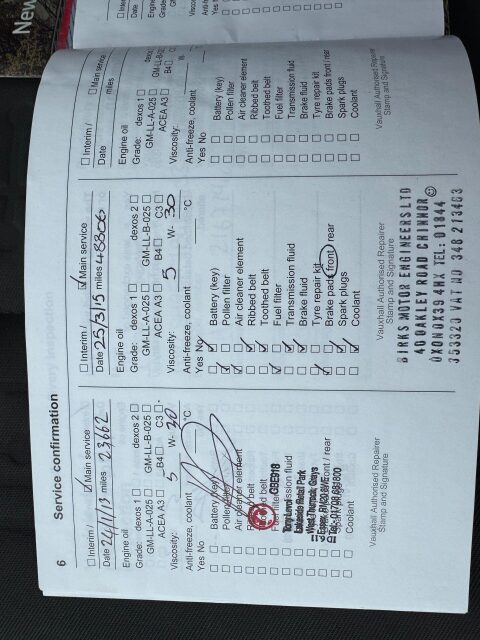 6
Service confirmation
☐ Interim / ☑ Main service
Date 24/1/12 miles 23662
Engine oil
Grade: dexos 1 ☐ dexos 2 ☐
GM-LL-A-025 ☐ GM-LL-B-025 ☐
ACEA A3 ☐ B4 ☐ C3 ☐
Viscosity: 5 W- 30
Anti-freeze, coolant °C
Yes No
Battery (key)
Pollen
Air cleaner element
belt
belt
GBE918
Lakeside Retail Park
West Thurrock, Grays
fluid
front / rear
Coolant
Vauxhall Authorised Repairer
Stamp and Signature
☐ Interim / ☑ Main service
Date 25/3/15 miles 48806
Engine oil
Grade: dexos 1 ☐ dexos 2 ☐
GM-LL-A-025 ☐ GM-LL-B-025 ☐
ACEA A3 ☐ B4 ☐ C3 ☐
Viscosity: 5 W- 30
Anti-freeze, coolant °C
Yes No
Battery (key)
Pollen filter
Air cleaner element
Ribbed belt
Toothed belt
Fuel filter
Transmission fluid
Brake fluid
Tyre repair kit
Brake pads front / rear
Spark plugs
Coolant
Vauxhall Authorised Repairer
Stamp and Signature
BIRKS MOTOR ENGINEERS LTD
40 OAKLEY ROAD CHINNOR
OXON OX39 4HX TEL: 01844
353320 VAT NO 348 2134 63
☐ Interim / ☐ Main service
Date miles
Engine oil
Grade: dexos 1 ☐
GM-LL-A-025 ☐
ACEA A3 ☐
Viscosity:
Anti-freeze, coolant
Yes No
Battery (key)
Pollen filter
Air cleaner element
Ribbed belt
Toothed belt
Fuel filter
Transmission fluid
Brake fluid
Tyre repair kit
Brake pads front / rear
Spark plugs
Coolant
Vauxhall Authorised Repairer
Stamp and Signature
New